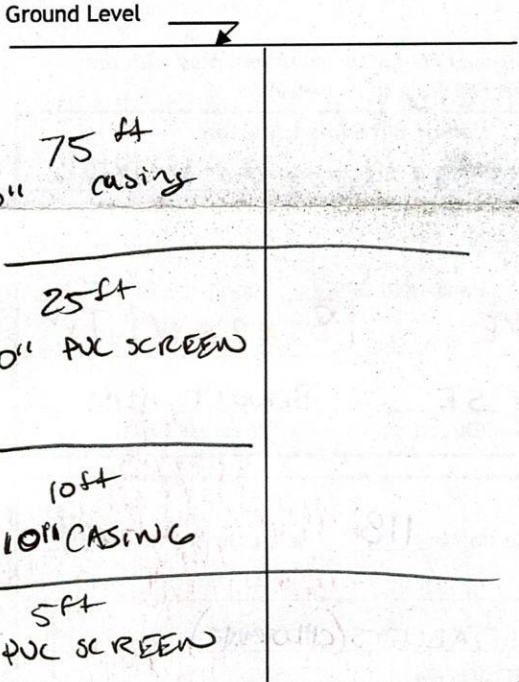 Ground Level
75 ft
casing
25 ft
PVC SCREEN
10ft
10" CASING
5ft
PVC SCREEN